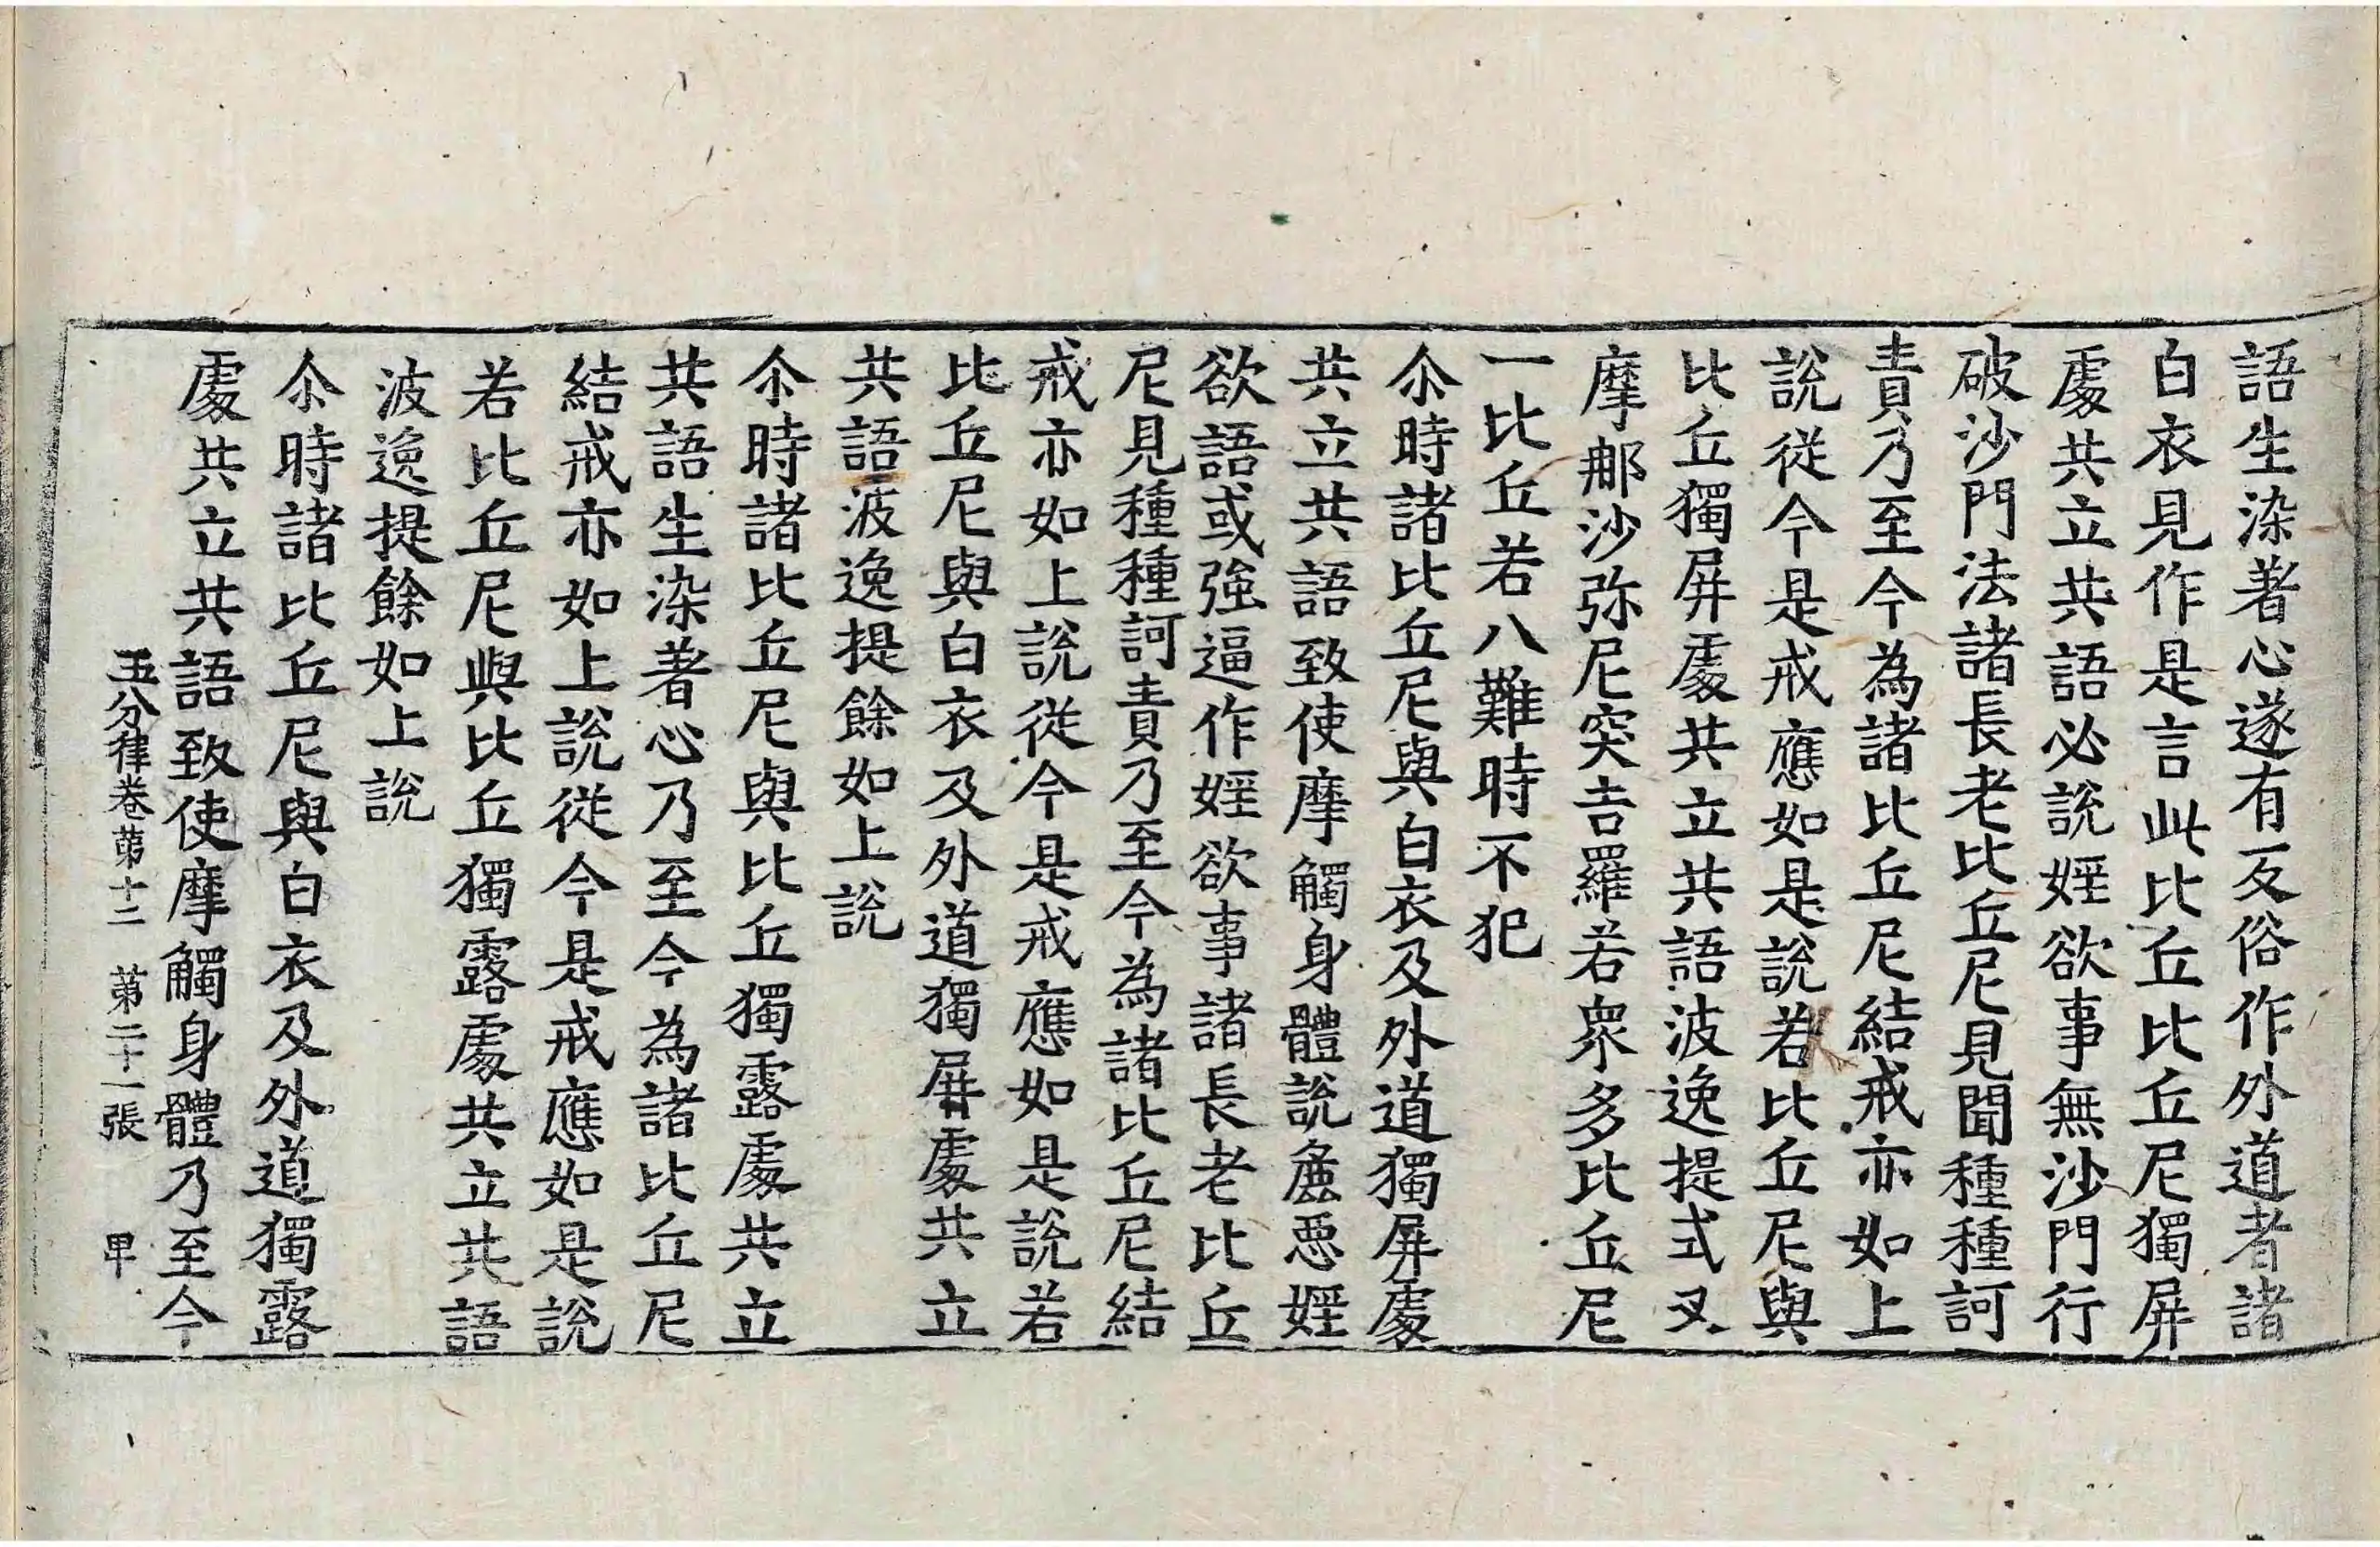 語生染著心遂有反俗作外道者諸
白衣見作是言此比丘比丘尼獨屏
處共立共語必說婬欲事無沙門行
破沙門法諸長老比丘尼見聞種種訶
責乃至今為諸比丘尼結戒亦如上
說從今是戒應如是說若比丘尼與
比丘獨屏處共立共語波逸提式叉
摩那沙弥尼突吉羅若衆多比丘尼
一比丘若八難時不犯
尒時諸比丘尼與白衣及外道獨屏處
共立共語致使摩觸身體說麁惡婬
欲語或強逼作婬欲事諸長老比丘
尼見種種訶責乃至今為諸比丘尼結
戒亦如上說從今是戒應如是說若
比丘尼與白衣及外道獨屏處共立
共語波逸提餘如上說
尒時諸比丘尼與比丘獨露處共立
共語生染著心乃至今為諸比丘尼
結戒亦如上說從今是戒應如是說
若比丘尼與比丘獨露處共立共語
波逸提餘如上說
尒時諸比丘尼與白衣及外道獨露
處共立共語致使摩觸身體乃至今
五分律卷第十二　第二十一張　甲